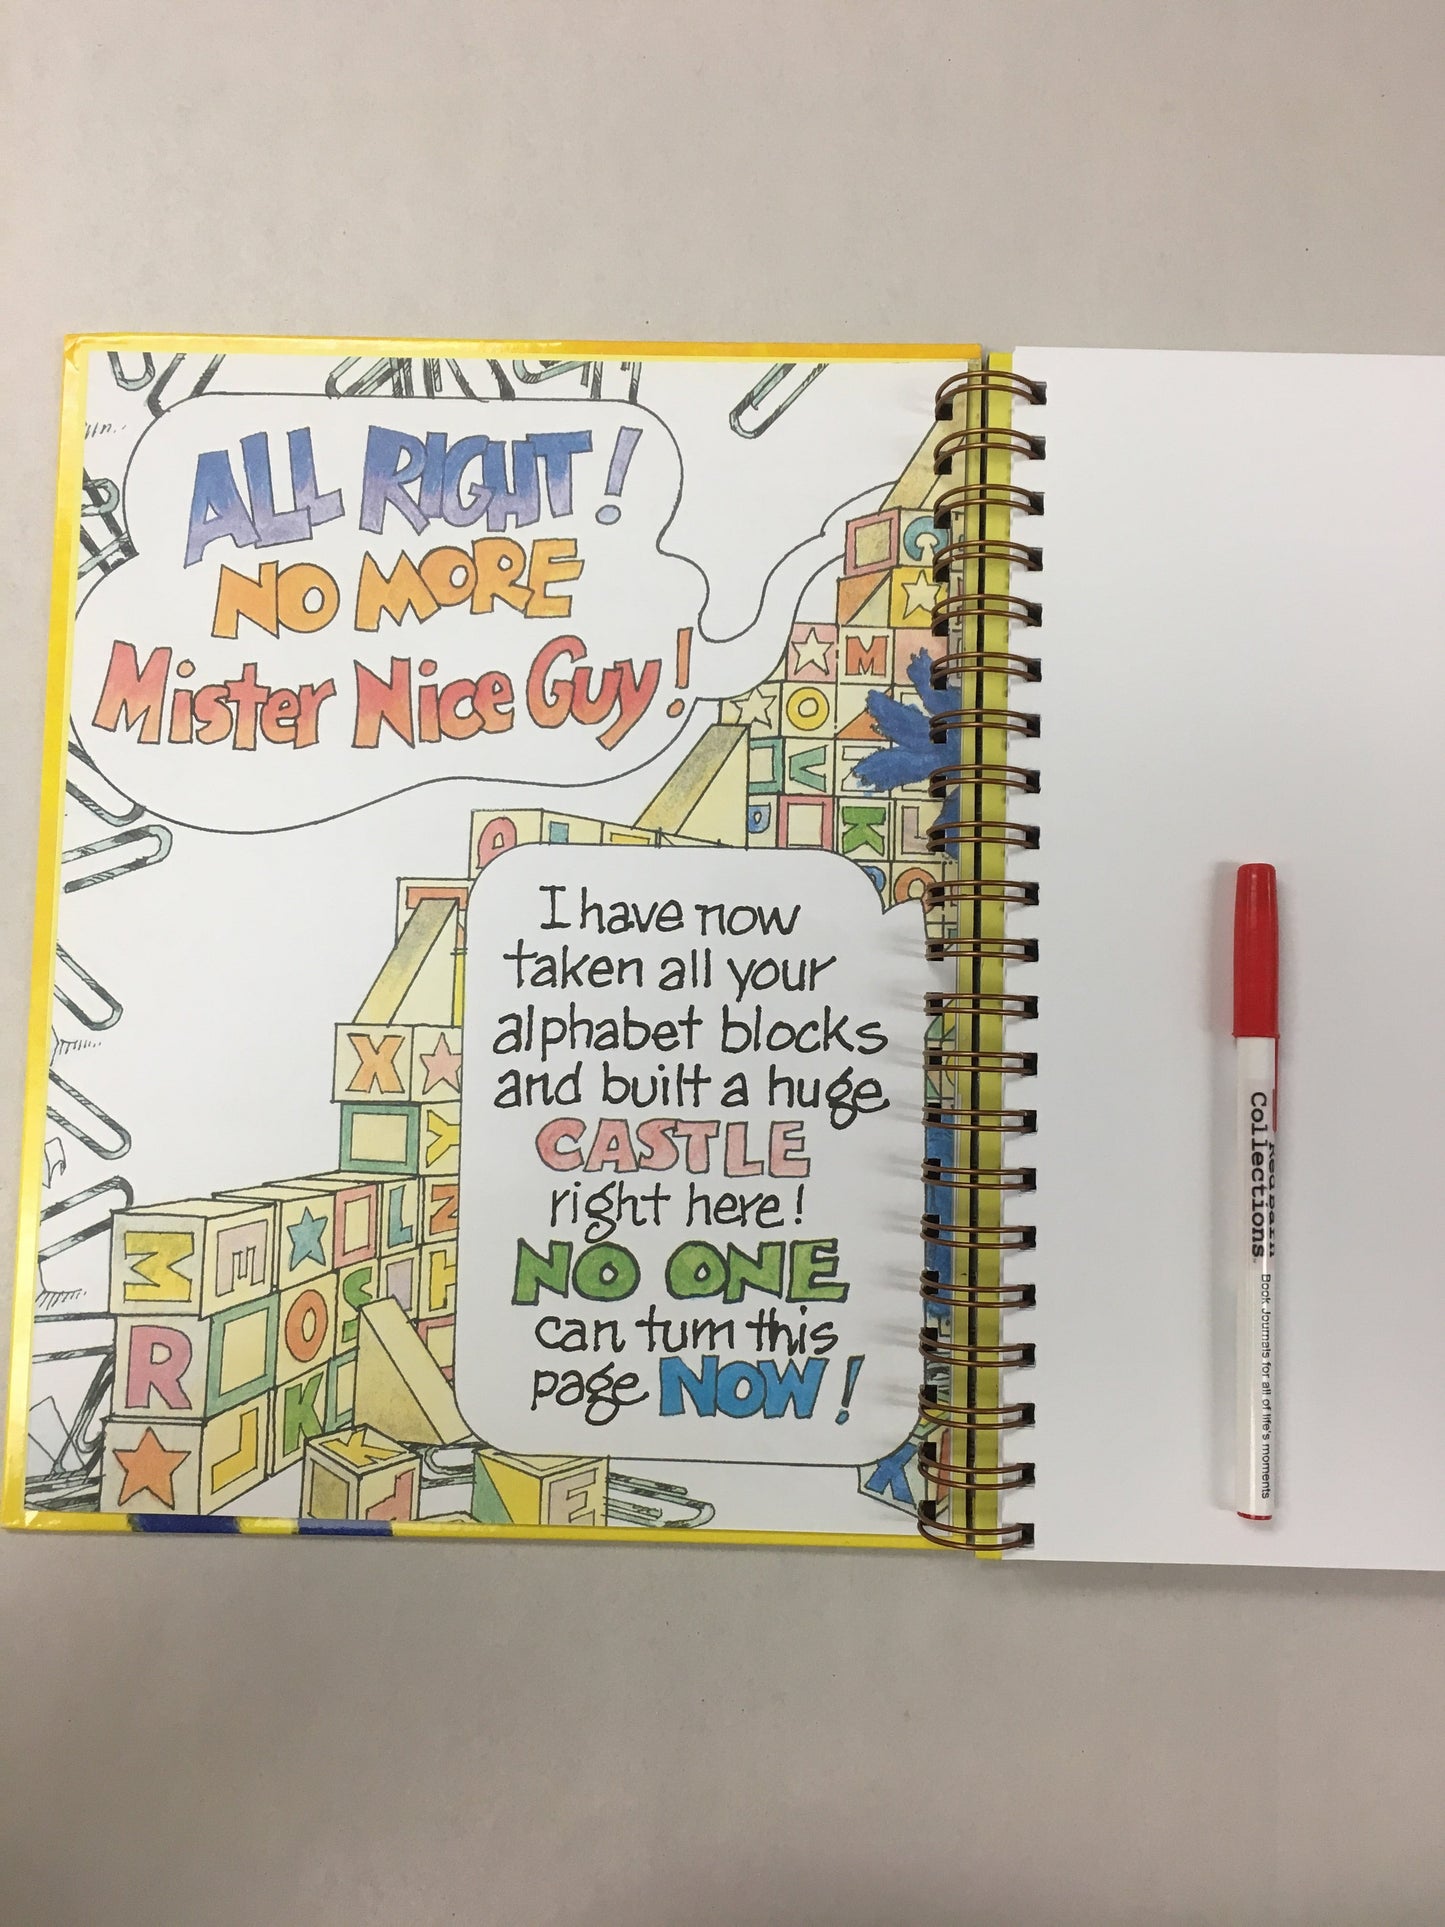 ALL RIGHT!
NO MORE
Mister Nice Guy!
I have now
taken all your
alphabet blocks
and built a huge
CASTLE
right here!
NO ONE
can turn this
page NOW!
Collections
Book Journals for all of life's moments